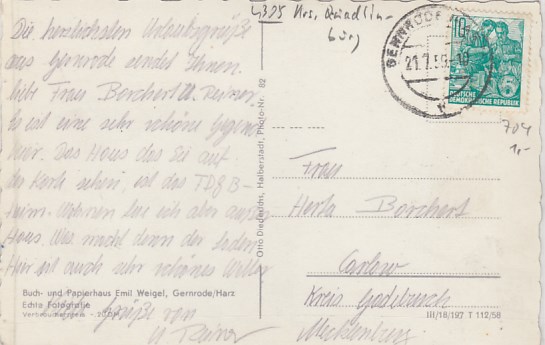 4305 Krs. Quedlin-
burg
GERNRODE
21.7.59-10
10
DEUTSCHE
DEMOKRATISCHE REPUBLIK
704
1,-
Die herzlichsten Urlaubsgrüße
aus Gernrode sendet Ihnen.
liebe Frau Borchert
Es ist eine sehr schöne Gegend
hier. Das Haus das Sie auf
der Karte sehen, ist das FDGB-
Heim. Wohnen tue ich aber außer
Haus. Was macht denn der Laden
Hier ist auch sehr schönes Wetter
Grüße von
Buch- und Papierhaus Emil Weigel, Gernrode/Harz
Echte Fotografie
Otto Diederichs, Halberstadt, Photo-Nr. 82
Frau
Herta Borchert
Carlow
Kreis Gadebusch
Mecklenburg
III/18/197 T 112/58